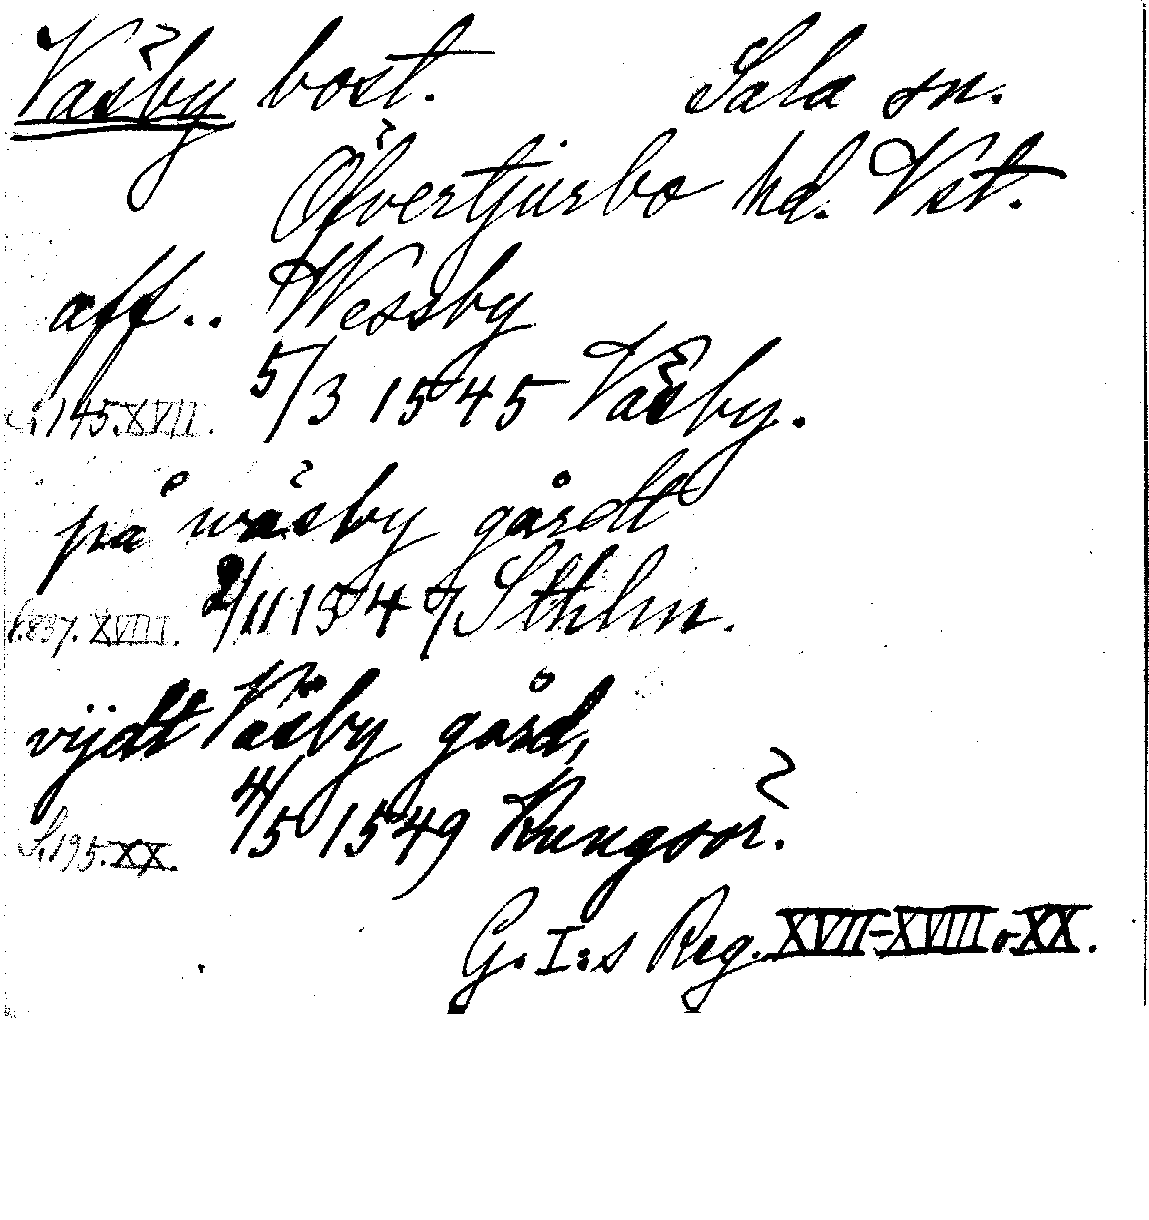 Väsby bost. Sala sn.
Öfvertjurbo hd. Vst.
aff.. Wessby
S. 145. XVII. 5/3 1545 Väsby.
på wäsby gårdt
S. 837. XVIII. 2/11 1547 Sthlm.
vijdt Väsby gård,
S. 195. XX. 4/5 1549 Kungsör.
G. I:s Reg. XVII-XVIII o. XX.